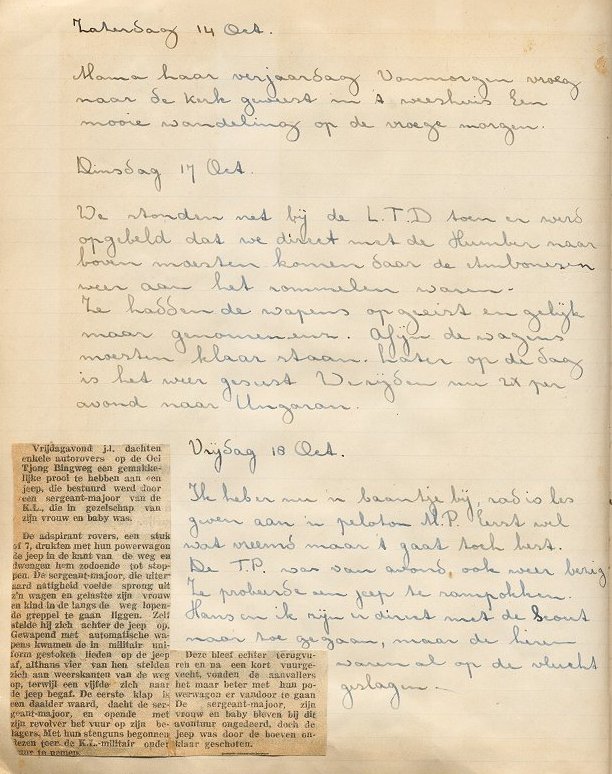 Zaterdag 14 Oct.
Mama haar verjaardag Vanmorgen vroeg
naar de kerk geweest in 't weeshuis Een
mooie wandeling op de vroege morgen.
Dinsdag 17 Oct.
We stonden net bij de L.T.D toen er werd
opgebeld dat we direct met de Humber naar
boven moesten komen daar de Ambonezen
weer aan het rommelen waren.
Ze hadden de wapens opgeeist en gelijk
maar genomen enz. Afijn de wagens
moesten klaar staan. Later op de dag
is het weer gesust We rijden nu 2x per
avond naar Ungaran.
Vrijdag 18 Oct.
Ik heb er nu 'n baantje bij, radio les
geven aan 'n peloton M.P. Eerst wel
wat vreemd maar 't gaat toch best.
De T.P. was van avond ook weer bezig
Ze probeerde een jeep te rampokken.
Hans en ik zijn er direct met de Scout
naar toe gegaan, maar de heren
waren al op de vlucht
geslagen.
Vrijdagavond j.l. dachten
enkele autorovers op de Oei
Tjong Bingweg een gemakke-
lijke prooi te hebben aan een
jeep, die bestuurd werd door
een sergeant-majoor van de
K.L., die in gezelschap van
zijn vrouw en baby was.
De adspirant rovers, een stuk
of 7, drukten met hun powerwagon
de jeep in de kant van de weg en
dwongen hem zodoende tot stop-
pen. De sergeant-majoor, die uiter-
aard nattigheid voelde sprong uit
z'n wagen en gelastte zijn vrouw
en kind in de langs de weg lopen-
de greppel te gaan liggen. Zelf
stelde hij zich achter de jeep op.
Gewapend met automatische wa-
pens kwamen de in militair uni-
form gestoken lieden op de jeep
af, althans vier van hen stelden
zich aan weerskanten van de weg
op, terwijl een vijfde zich naar
de jeep begaf. De eerste klap is
een daalder waard, dacht de ser-
geant-majoor, en opende met
zijn revolver het vuur op zijn be-
lagers. Met hun stenguns begonnen
dezen toen de K.L.-militair onder
vuur te nemen.
Deze bleef echter terugvu-
ren en na een kort vuurge-
vecht, vonden de aanvallers
het maar beter met hun po-
werwagon er vandoor te gaan
De sergeant-majoor, zijn
vrouw en baby bleven bij dit
avontuur ongedeerd, doch de
jeep was door de boeven on-
klaar geschoten.